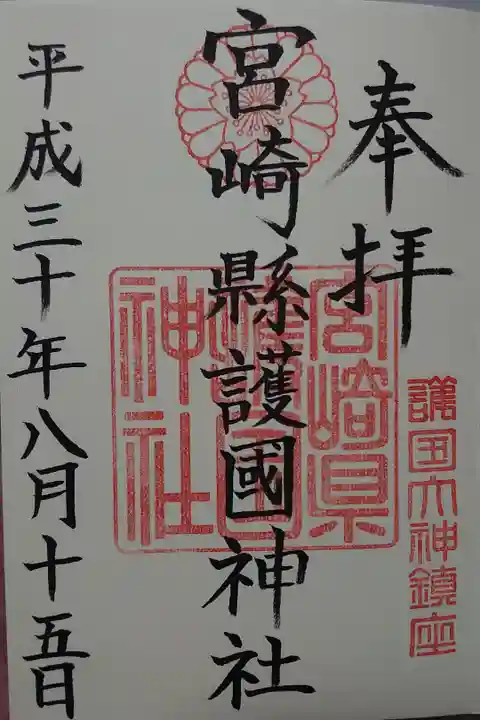 奉拝
護国大神鎮座
宮崎縣護國神社
宮崎県
護国
神社
平成三十年八月十五日